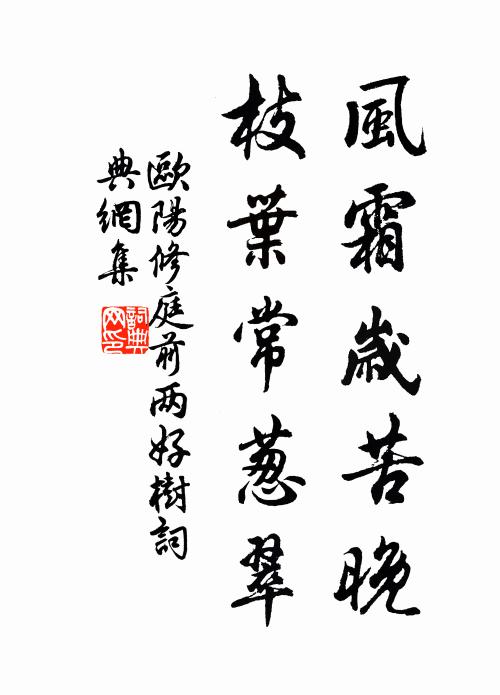 風霜歲苦晚
枝葉常葱翠
歐陽修庭前两好樹詞
典網集
詞典
网印